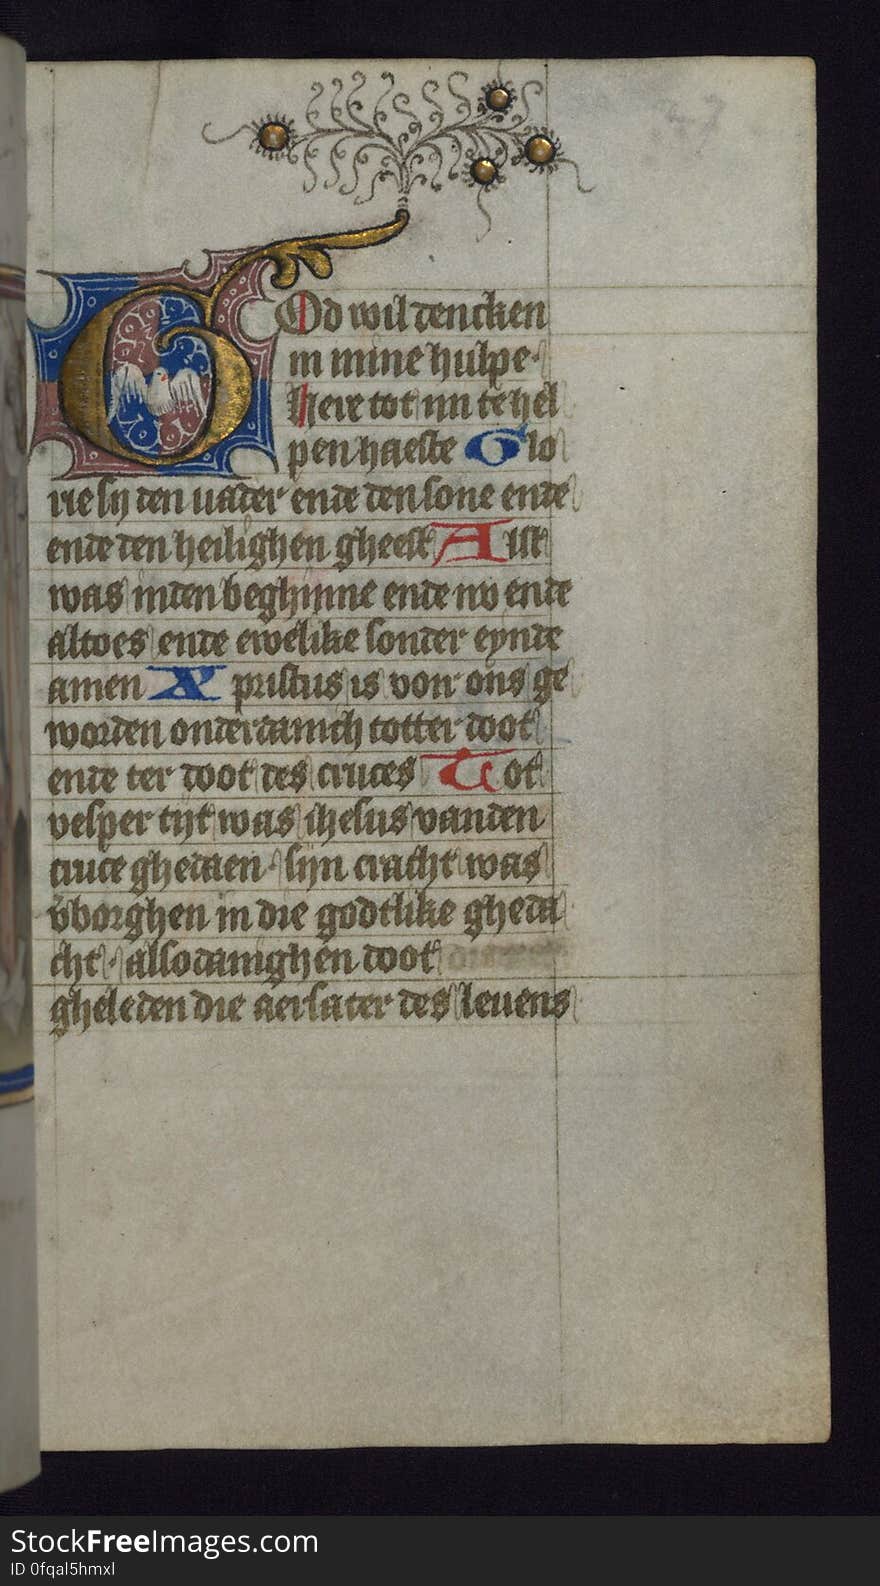 47
GOd wil dencken
in mine hulpe·
here tot mi te hel
pen haeste Glo
rie sy den uader ende den sone ende
ende den heilighen gheest Alst
was inden beghinne ende nv ende
altoes ende ewelike sonder eynde
amen Xpristus is voir ons ge
worden onderdanich totter doot
ende ter doot des cruces Tot
vesper tijt was ihesus vanden
cruce ghedaen· sijn cracht was
v̄borghen in die godtlike gheda
cht· alsodanighen doot
gheleden die aersater des leuens
StockFreeImages.com
ID 0fqal5hmxl